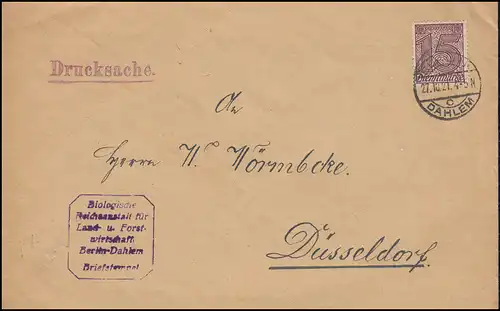 Drucksache.
15
27.10.21. 4-5 N
DAHLEM
An
Herrn W. Wörmbcke.
Düsseldorf.
Biologische
Reichsanstalt für
Land- u. Forst-
wirtschaft
Berlin-Dahlem
Briefstempel